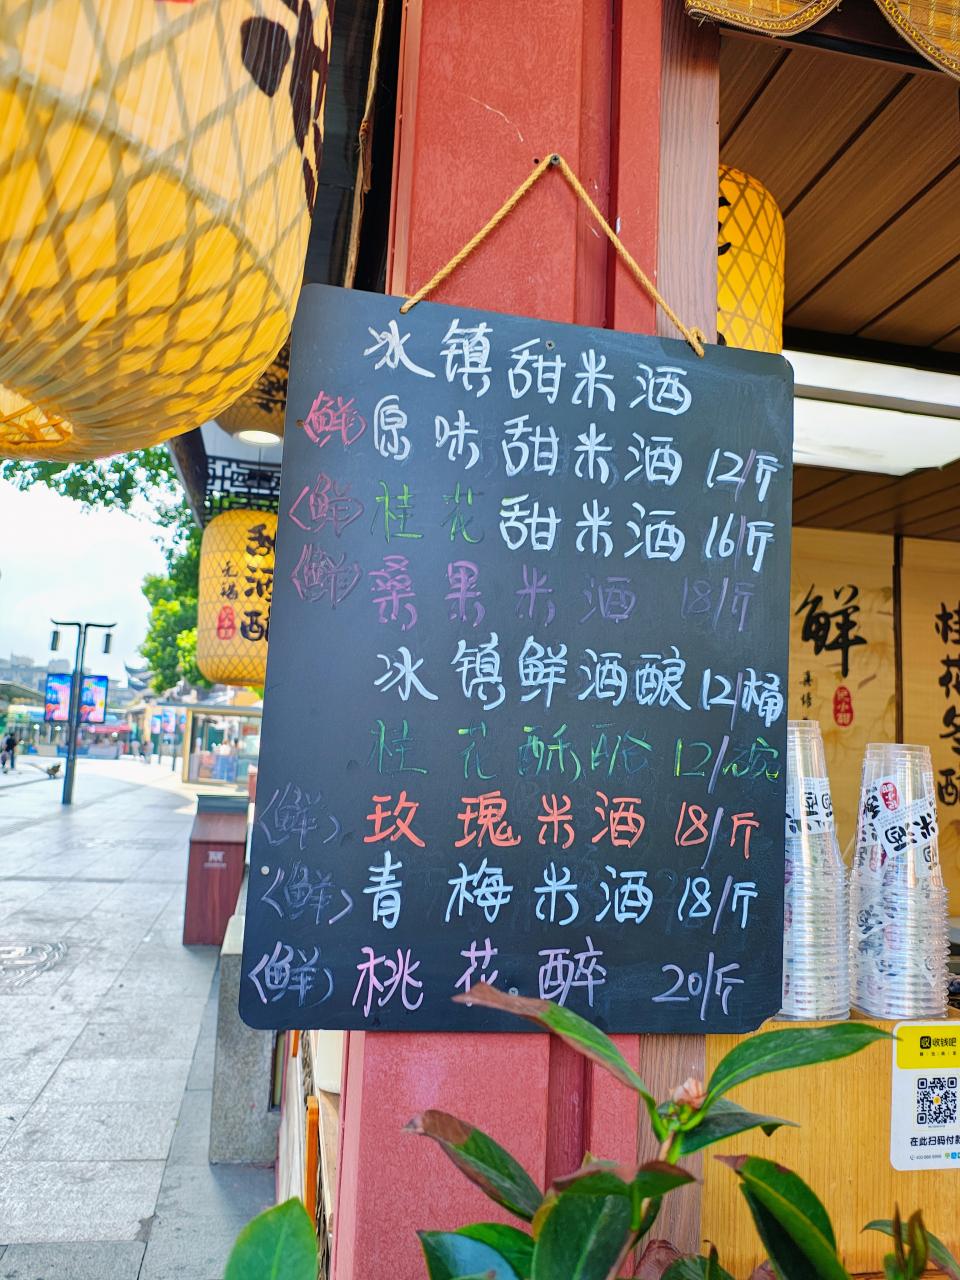 冰镇甜米酒
鲜 原味甜米酒 12/斤
<鲜> 桂花甜米酒 16/斤
<鲜> 桑果米酒 18/斤
冰镇鲜酒酿 12/桶
桂花酥酪 12/碗
<鲜> 玫瑰米酒 18/斤
<鲜> 青梅米酒 18/斤
<鲜> 桃花醉 20/斤
鲜
桂花冬酿
米酒
收钱吧
在此扫码付款